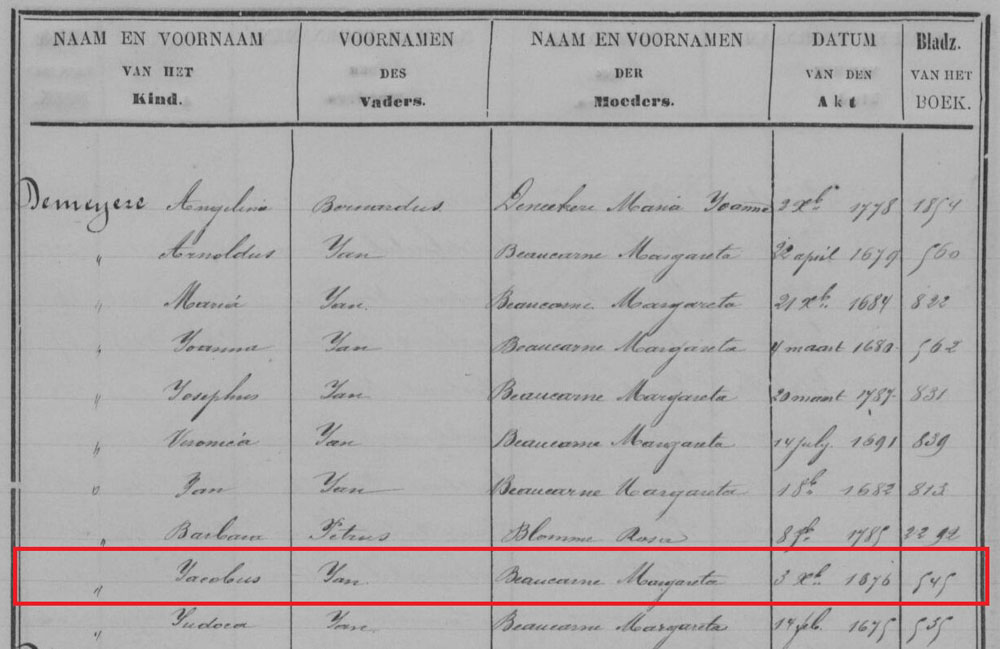 NAAM EN VOORNAAM VOORNAMEN NAAM EN VOORNAMEN DATUM Bladz.
VAN HET DES DER VAN DEN VAN HET
Kind. Vaders. Moeders. Akt BOEK.
Demeyere Angelina Bernardus Deneckere Maria Yoanna 3 Xb 1778 1854
" Arnoldus Yan Beaucarne Margareta 22 april 1679 560
" Maria Yan Beaucarne Margareta 21 Xb. 1684 822
" Yoanna Yan Beaucarne Margareta 4 maart 1680 562
" Yosephus Yan Beaucarne Margareta 20 maart 1787 831
" Veronica Yan Beaucarne Margareta 14 july 1691 839
" Yan Yan Beaucarne Margareta 1 8b 1682 813
" Barbara Petrus Blomme Rosa 8 1785 2292
" Yacobus Yan Beaucarne Margareta 3 Xb 1676 545
" Yudoca Yan Beaucarne Margareta 14 feb. 1675 535